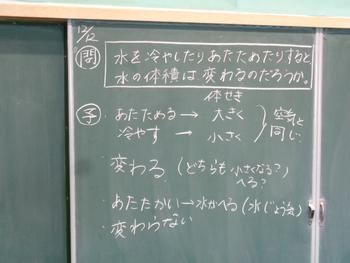 12/12
問 水を冷やしたりあたためたりすると、
水の体積は変わるのだろうか。
体せき
予 ・あたためる → 大きく
冷やす → 小さく
空気と
同じ
・変わる (どちらも小さくなる?
へる?
・あたたかい→水がへる(水じょう気)
・変わらない